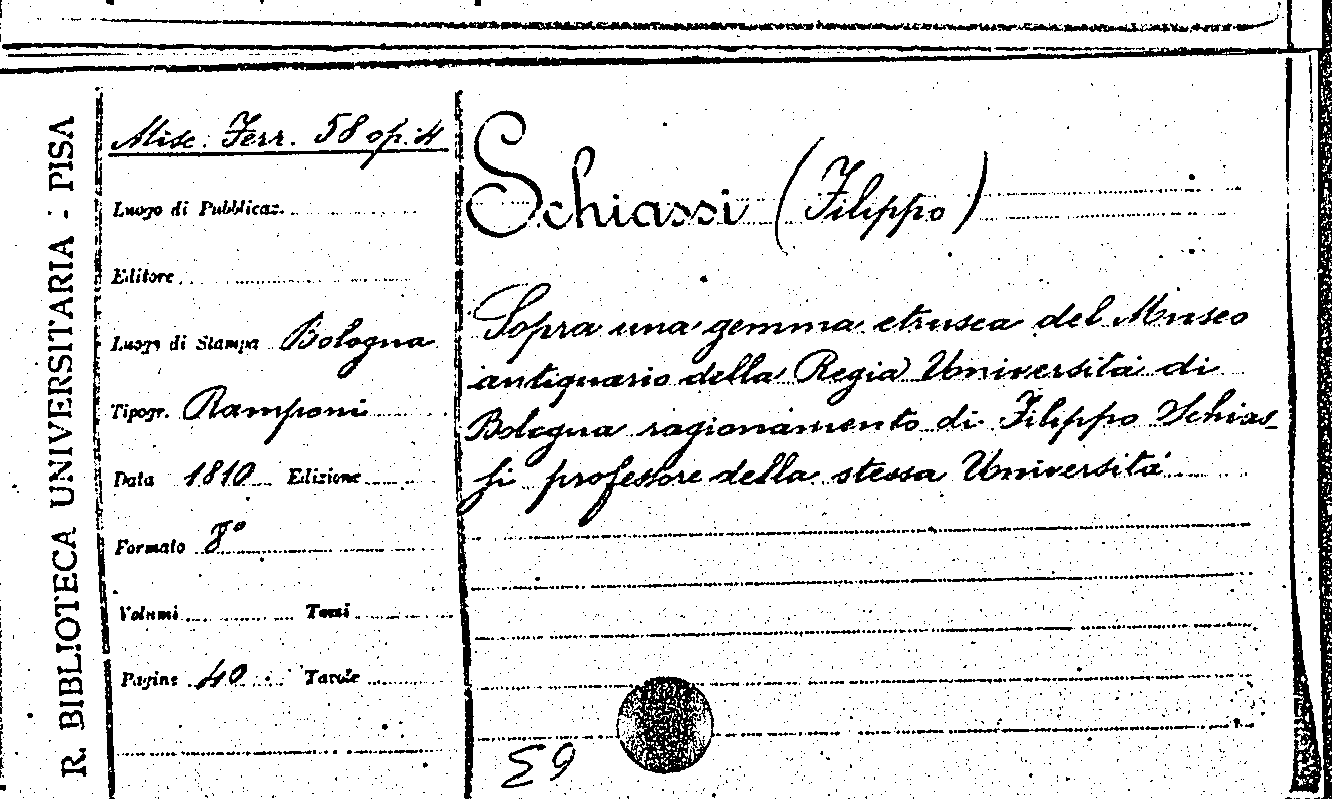 R. BIBLIOTECA UNIVERSITARIA - PISA
Misc. Ferr. 58 op. 4
Luogo di Pubblicaz.
Editore
Luogo di Stampa Bologna
Tipogr. Ramponi
Data 1810 Edizione
Formato 8°
Volumi Tomi
Pagine 40 Tavole
Schiassi (Filippo)
Sopra una gemma etrusca del Museo
antiquario della Regia Università di
Bologna ragionamento di Filippo Schias-
si professore della stessa Università